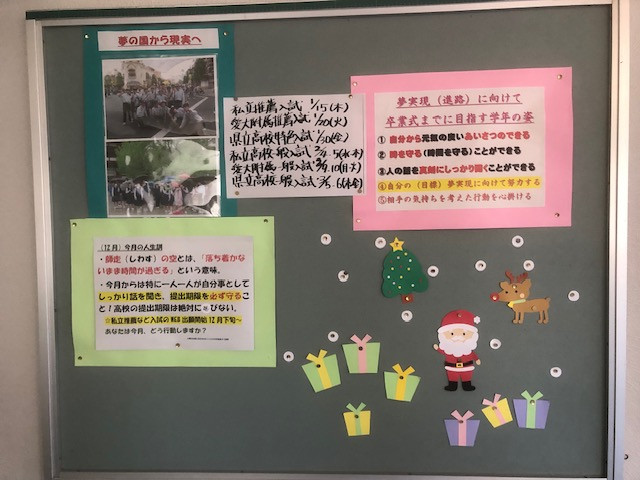 夢の国から現実へ
私立推薦入試 1/15(木)
愛大附属推薦入試 1/20(火)
県立高校特色入試 1/30(金)
私立高校一般入試 2/4.5(水木)
愛大附属一般入試 2/9.10(月火)
県立高校一般入試 3/5.6(木金)
夢実現(進路)に向けて
卒業式までに目指す学年の姿
① 自分から元気の良いあいさつのできる
② 時を守る(時間を守る)ことができる
③人の話を真剣にしっかり聞くことができる
④自分の(目標)夢実現に向けて努力する
⑤相手の気持ちを考えた行動を心掛ける
(12月)今月の人生訓
・師走(しわす)の空とは、「落ち着かな
いまま時間が過ぎる」という意味。
・今月からは特に一人一人が自分事として
しっかり話を聞き、提出期限を必ず守るこ
と!高校の提出期限は絶対に延びない。
☆私立推薦など入試のWEB出願開始12月下旬~
あなたは今月、どう行動しますか?